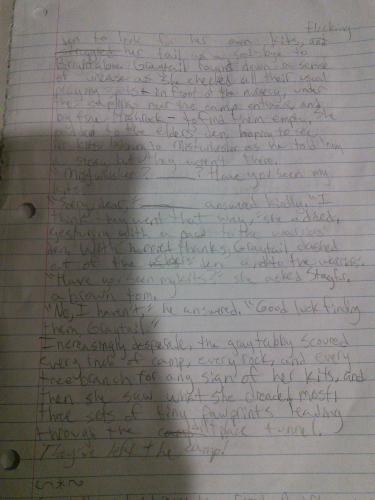 flicking
den to look for her own kits, and
her tail in a good-bye to
Graytail found down a sense
of unease as she checked all their usual
playing spots - in front of the nursery, under
the sapling near the camp entrance, and
on the Highrock - to find them empty. She
padded to the elders' den, hoping to see
her kits listen to Mistwhisker as he told them
a story, but they weren't there.
"Mistwhisker? ____? Have you seen my
kits?"
"Sorry, dear," ____ answered kindly. "I
think they went that way," she added,
gesturing with a paw to the warriors'
den. With hurried thanks, Graytail dashed
out of the elders' den and to the warriors.
"Have you seen my kits?" she asked
a brown tom.
"No, I haven't," he answered. "Good luck finding
them, Graytail."
Increasingly desperate, the gray tabby scoured
every inch of camp, every rock, and every
tree branch for any sign of her kits, and
then she saw what she dreaded most;
three sets of tiny pawprints leading
through the dirtplace tunnel.
They've left the camp!